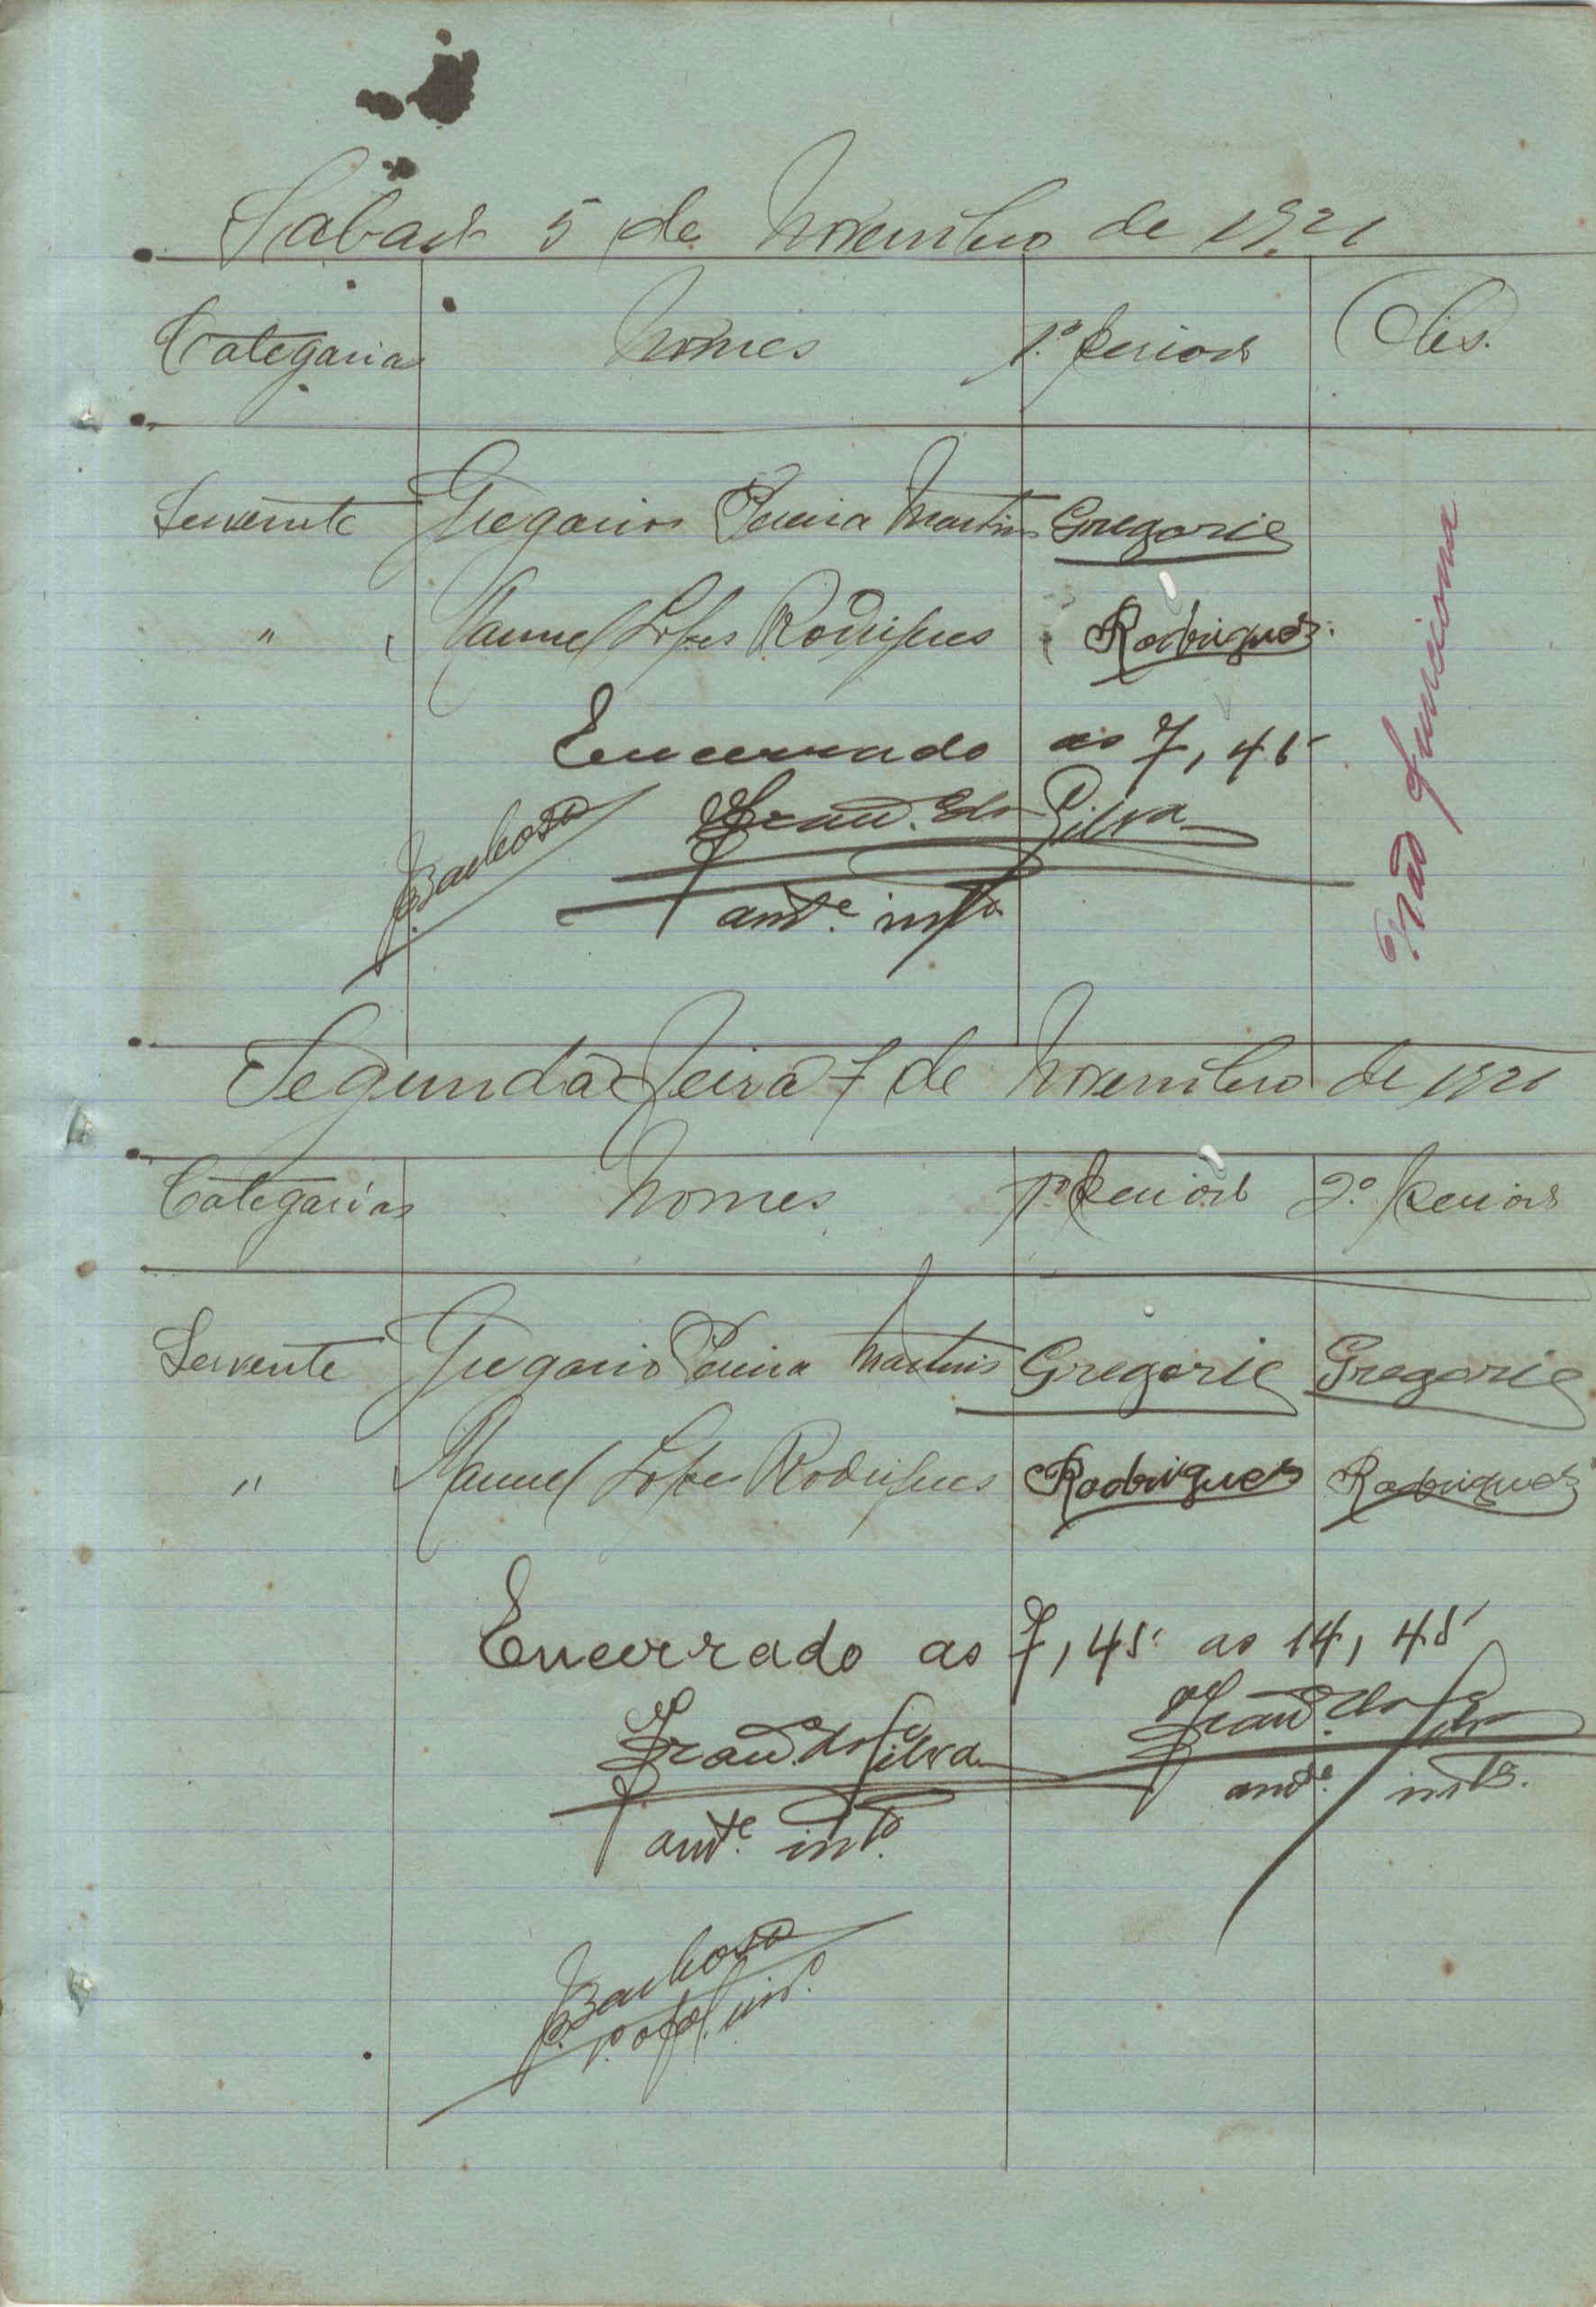 Sabado 5 de Novembro de 1921
Categorias Nomes 1º periodo Obs.
Servente Gregorio Pereira Martins Gregorio
" Manuel Lopes Rodrigues Rodrigues
Não funciona
Encerrado as 7,45
Barbosa Franco. da Silva
amte. into.
Segunda Feira 7 de Novembro de 1921
Categorias Nomes 1º periodo 2º periodo
Servente Gregorio Pereira Martins Gregorio Gregorio
" Manuel Lopes Rodrigues Rodrigues Rodrigues
Encerrado as 7,45 as 14,45
Franco. da Silva Franco. da Silva
amte. into. amte. into.
Barbosa